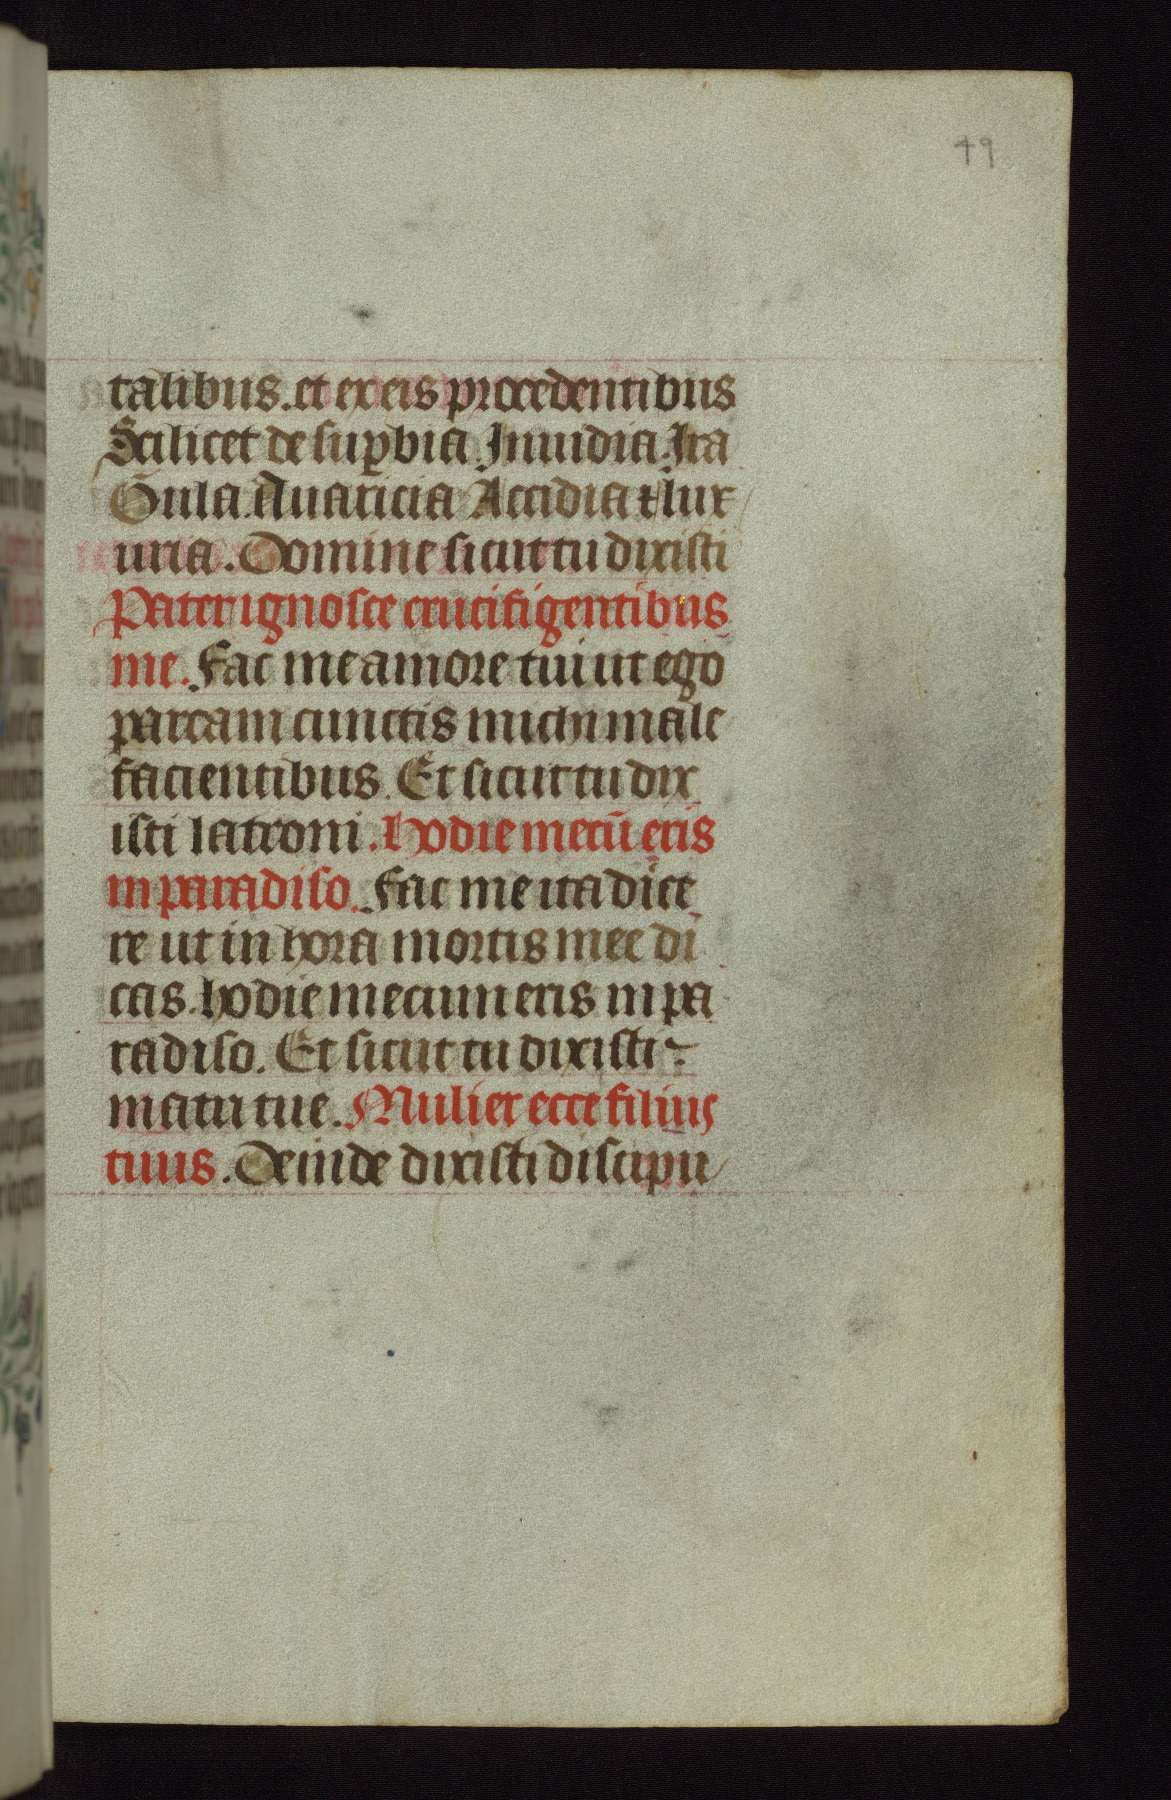 49
talibus. et ex eis procedentibus
Scilicet de suꝑbia. Inuidia. Ira
Gula. Auaricia Accidia ⁊ lux
uria. Domine sicut tu dixisti
Pater ignosce crucifigentibus
me. Fac me amore tui ut ego
parcam cunctis michi male
facientibus. Et sicut tu dix
isti latroni. hodie mecū eris
in paradiso. Fac me ita dice
re ut in hora mortis mee di
cas. hodie mecum eris in pa
radiso. Et sicut tu dixisti
matri tue. Mulier ecce filius
tuus. Deinde dixisti discipu